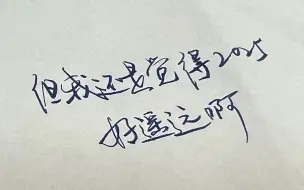 但我还是觉得2025
好遥远啊